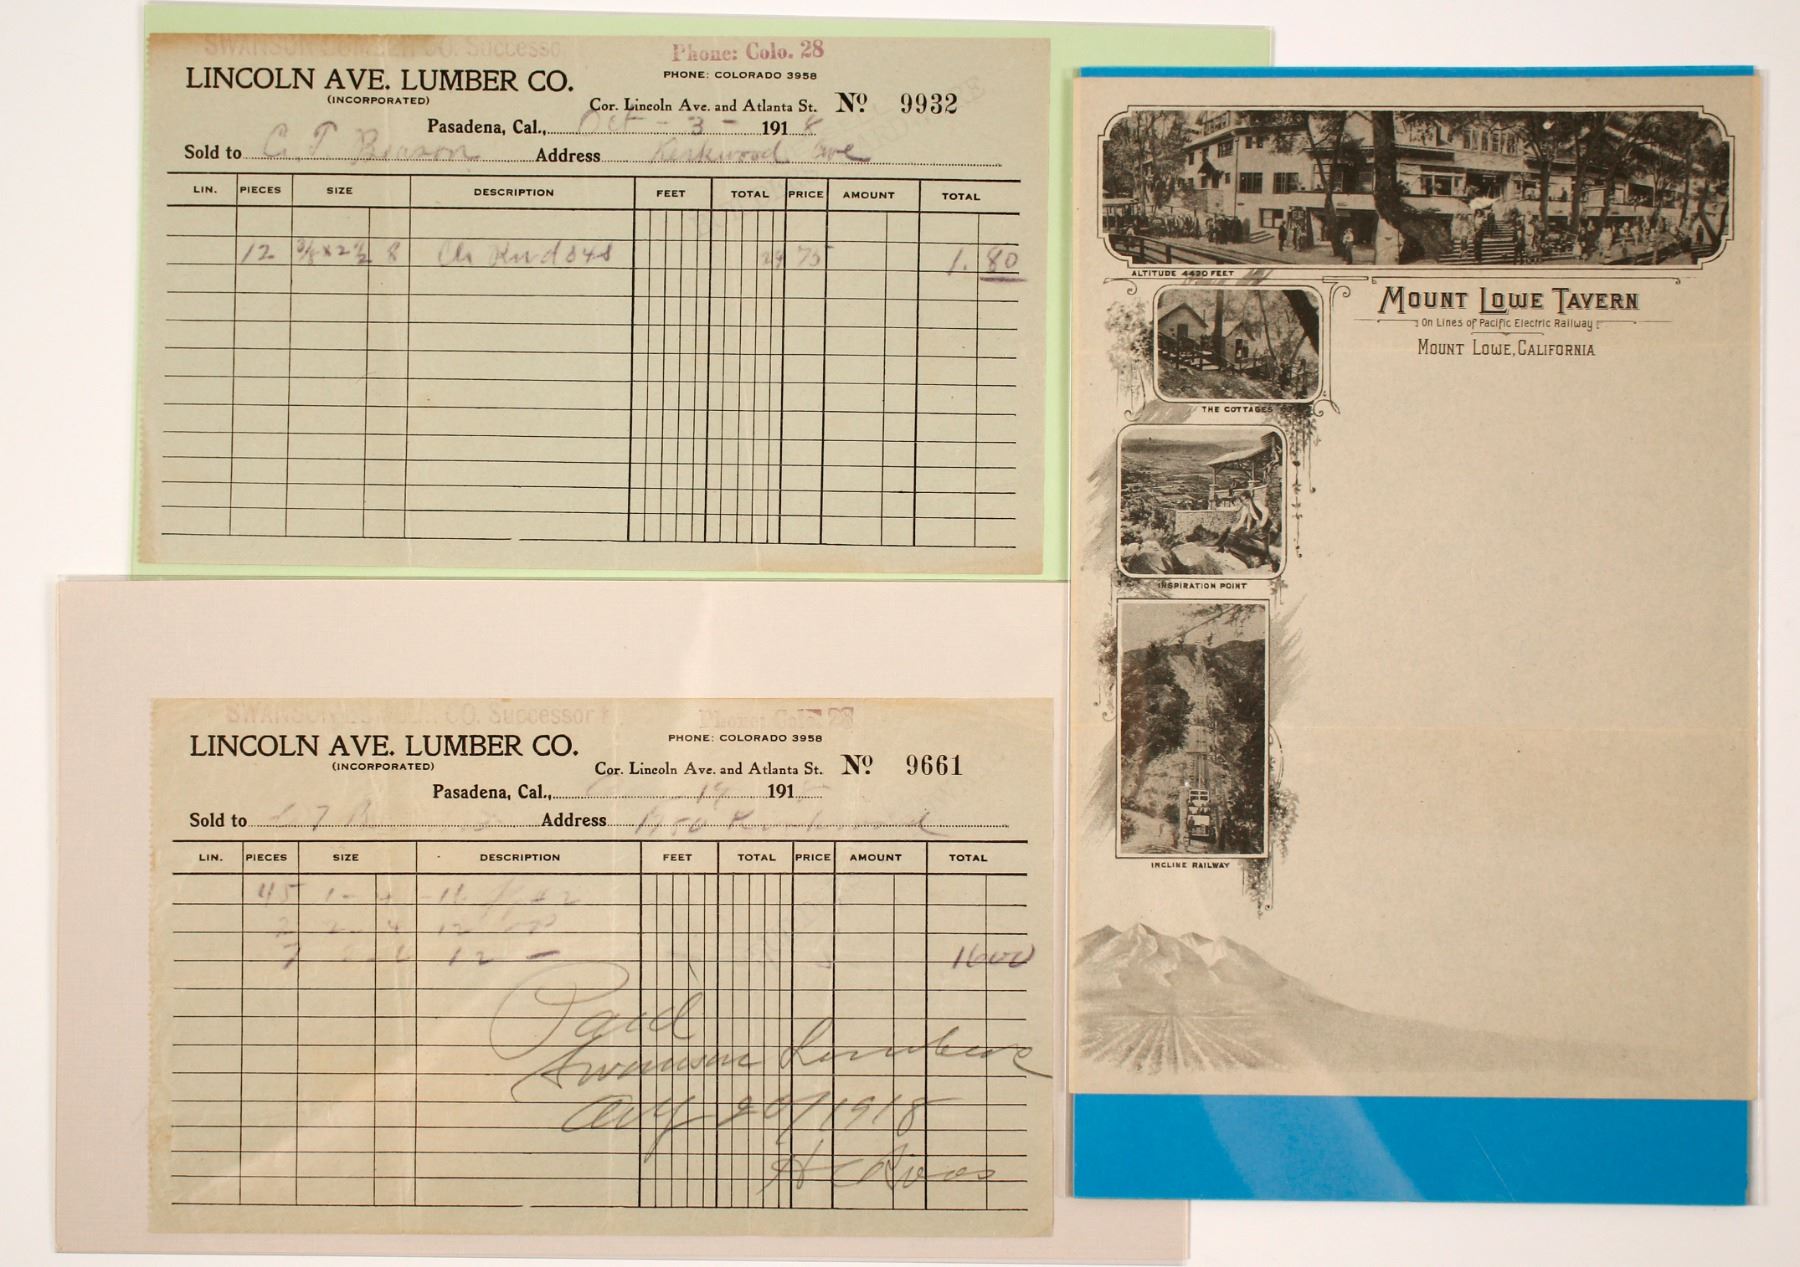 SWANSON LUMBER CO. Successor
Phone: Colo. 28
LINCOLN AVE. LUMBER CO.
PHONE: COLORADO 3958
(INCORPORATED)
Cor. Lincoln Ave. and Atlanta St. No 9932
Pasadena, Cal., Oct - 3 - 1918
Sold to C. T. Benson Address Kirkwood Ave
LIN. PIECES SIZE DESCRIPTION FEET TOTAL PRICE AMOUNT TOTAL
12 2½ 8 24 75 1.80
SWANSON LUMBER CO. Successor
Phone: Colo. 28
LINCOLN AVE. LUMBER CO.
PHONE: COLORADO 3958
(INCORPORATED)
Cor. Lincoln Ave. and Atlanta St. No 9661
Pasadena, Cal., 19 191
Sold to Address Kirkwood
LIN. PIECES SIZE DESCRIPTION FEET TOTAL PRICE AMOUNT TOTAL
45 1 -
2 2 - 4 12
7 12 - 1600
Paid
Swanson Lumber Co
Aug 20/1918
H C Roos
ALTITUDE 4420 FEET
MOUNT LOWE TAVERN
On Lines of Pacific Electric Railway
MOUNT LOWE, CALIFORNIA
THE COTTAGES
INSPIRATION POINT
INCLINE RAILWAY